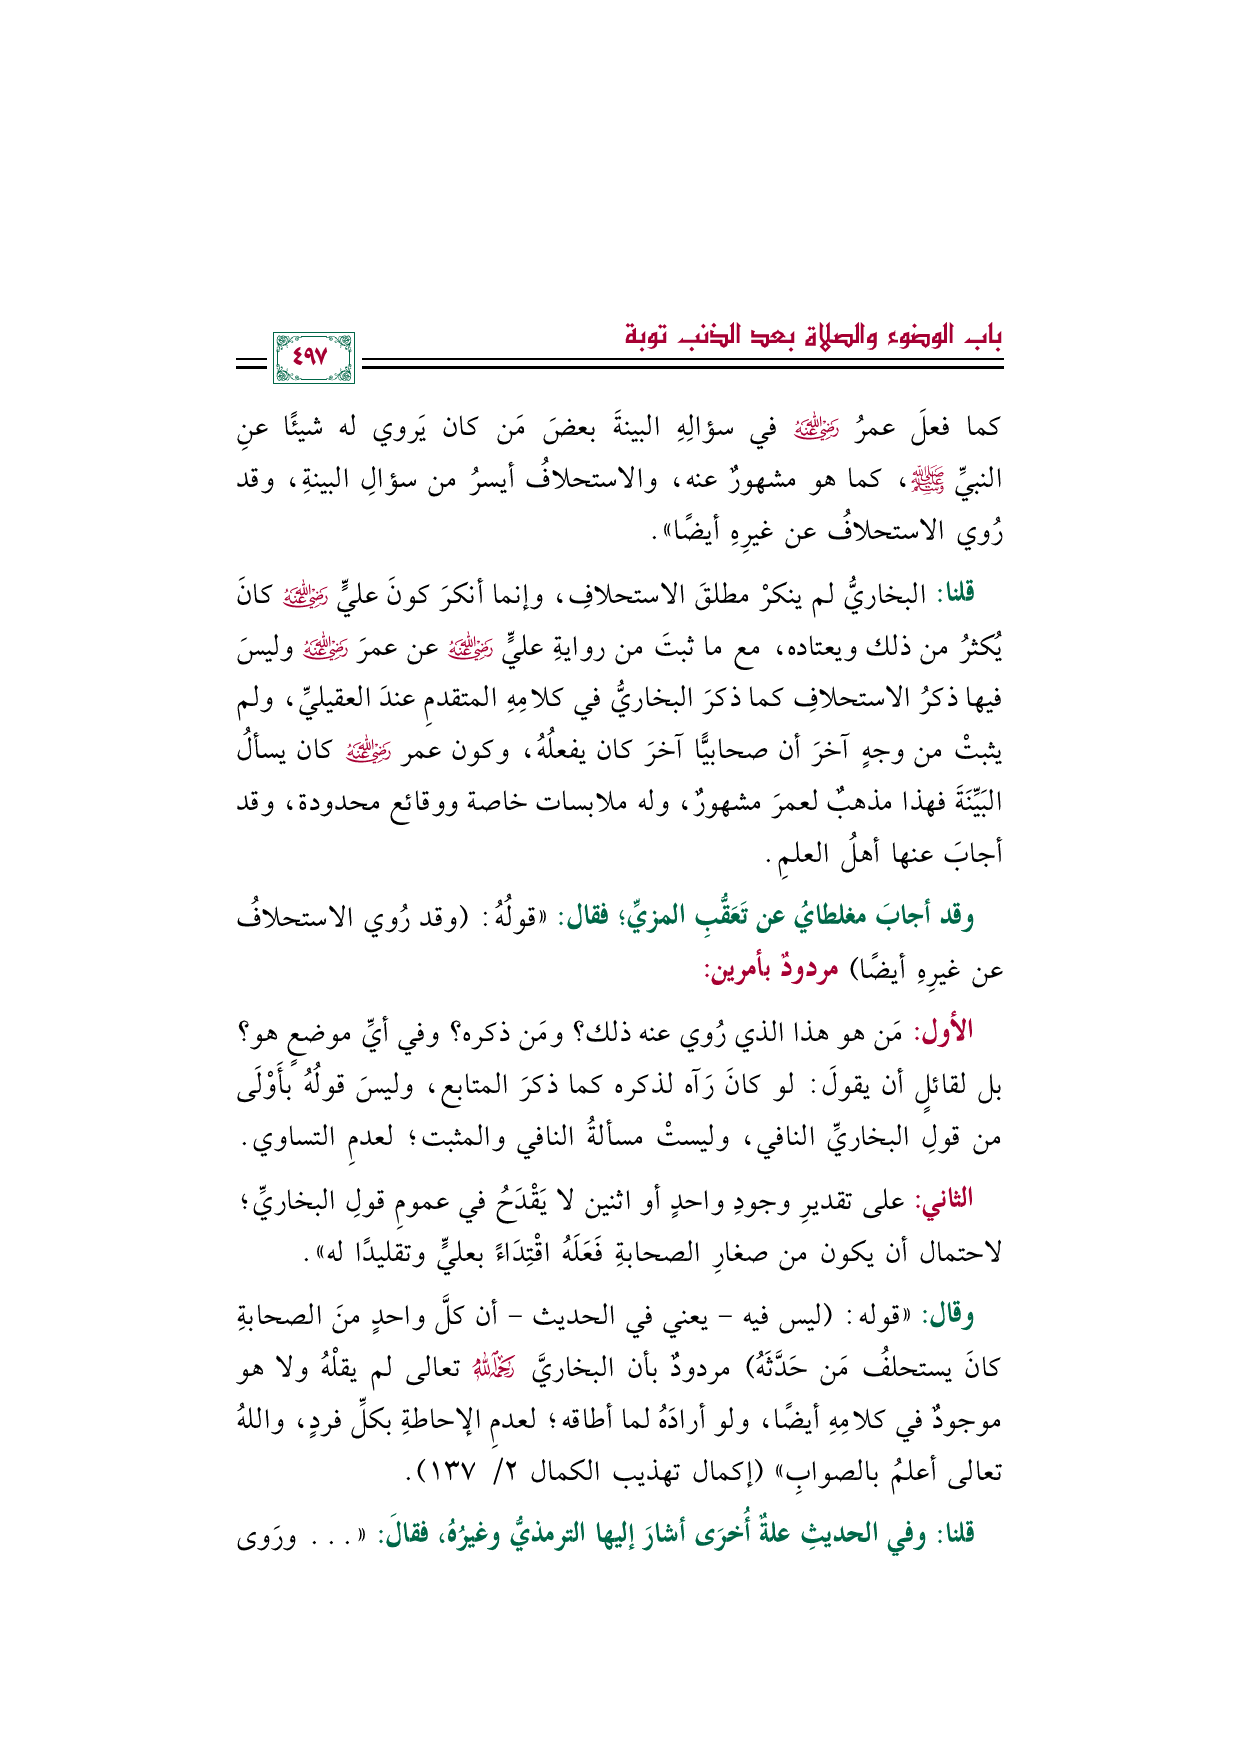 باب الوضوء والصلاة بعد الذنب توبة
٤٩٧
كما فعلَ عمرُ ﵁ في سؤالِهِ البينةَ بعضَ مَن كان يَروي له شيئًا عنِ
النبيِّ ﷺ، كما هو مشهورٌ عنه، والاستحلافُ أيسرُ من سؤالِ البينةِ، وقد
رُوي الاستحلافُ عن غيرِهِ أيضًا».
قلنا: البخاريُّ لم ينكرْ مطلقَ الاستحلافِ، وإنما أنكرَ كونَ عليٍّ ﵁ كانَ
يُكثرُ من ذلك ويعتاده، مع ما ثبتَ من روايةِ عليٍّ ﵁ عن عمرَ ﵁ وليسَ
فيها ذكرُ الاستحلافِ كما ذكرَ البخاريُّ في كلامِهِ المتقدمِ عندَ العقيليِّ، ولم
يثبتْ من وجهٍ آخرَ أن صحابيًّا آخرَ كان يفعلُهُ، وكون عمر ﵁ كان يسألُ
البَيِّنَةَ فهذا مذهبٌ لعمرَ مشهورٌ، وله ملابسات خاصة ووقائع محدودة، وقد
أجابَ عنها أهلُ العلمِ.
وقد أجابَ مغلطايُ عن تَعَقُّبِ المزيِّ؛ فقال: «قولُهُ: (وقد رُوي الاستحلافُ
عن غيرِهِ أيضًا) مردودٌ بأمرين:
الأول: مَن هو هذا الذي رُوي عنه ذلك؟ ومَن ذكره؟ وفي أيِّ موضعٍ هو؟
بل لقائلٍ أن يقولَ: لو كانَ رَآه لذكره كما ذكرَ المتابع، وليسَ قولُهُ بأَوْلَى
من قولِ البخاريِّ النافي، وليستْ مسألةُ النافي والمثبت؛ لعدمِ التساوي.
الثاني: على تقديرِ وجودِ واحدٍ أو اثنين لا يَقْدَحُ في عمومِ قولِ البخاريِّ؛
لاحتمال أن يكون من صغارِ الصحابةِ فَعَلَهُ اقْتِدَاءً بعليٍّ وتقليدًا له».
وقال: «قوله: (ليس فيه – يعني في الحديث – أن كلَّ واحدٍ منَ الصحابةِ
كانَ يستحلفُ مَن حَدَّثَهُ) مردودٌ بأن البخاريَّ ﵀ تعالى لم يقلْهُ ولا هو
موجودٌ في كلامِهِ أيضًا، ولو أرادَهُ لما أطاقه؛ لعدمِ الإحاطةِ بكلِّ فردٍ، واللهُ
تعالى أعلمُ بالصوابِ» (إكمال تهذيب الكمال ٢/ ١٣٧).
قلنا: وفي الحديثِ علةٌ أُخرَى أشارَ إليها الترمذيُّ وغيرُهُ، فقالَ: «... ورَوى